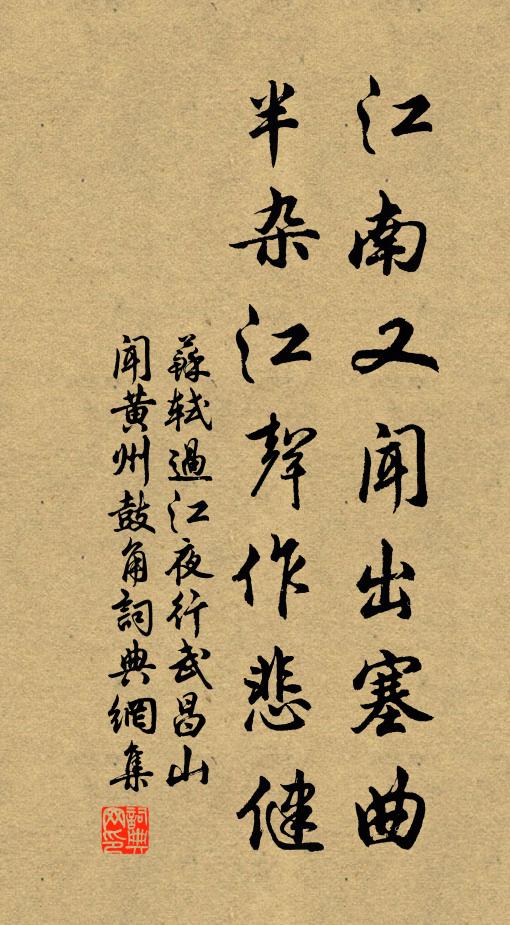 江南又闻出塞曲
半杂江聲作悲健
蘇軾過江夜行武昌山
闻黄州鼓角詞典網集
詞典
网印